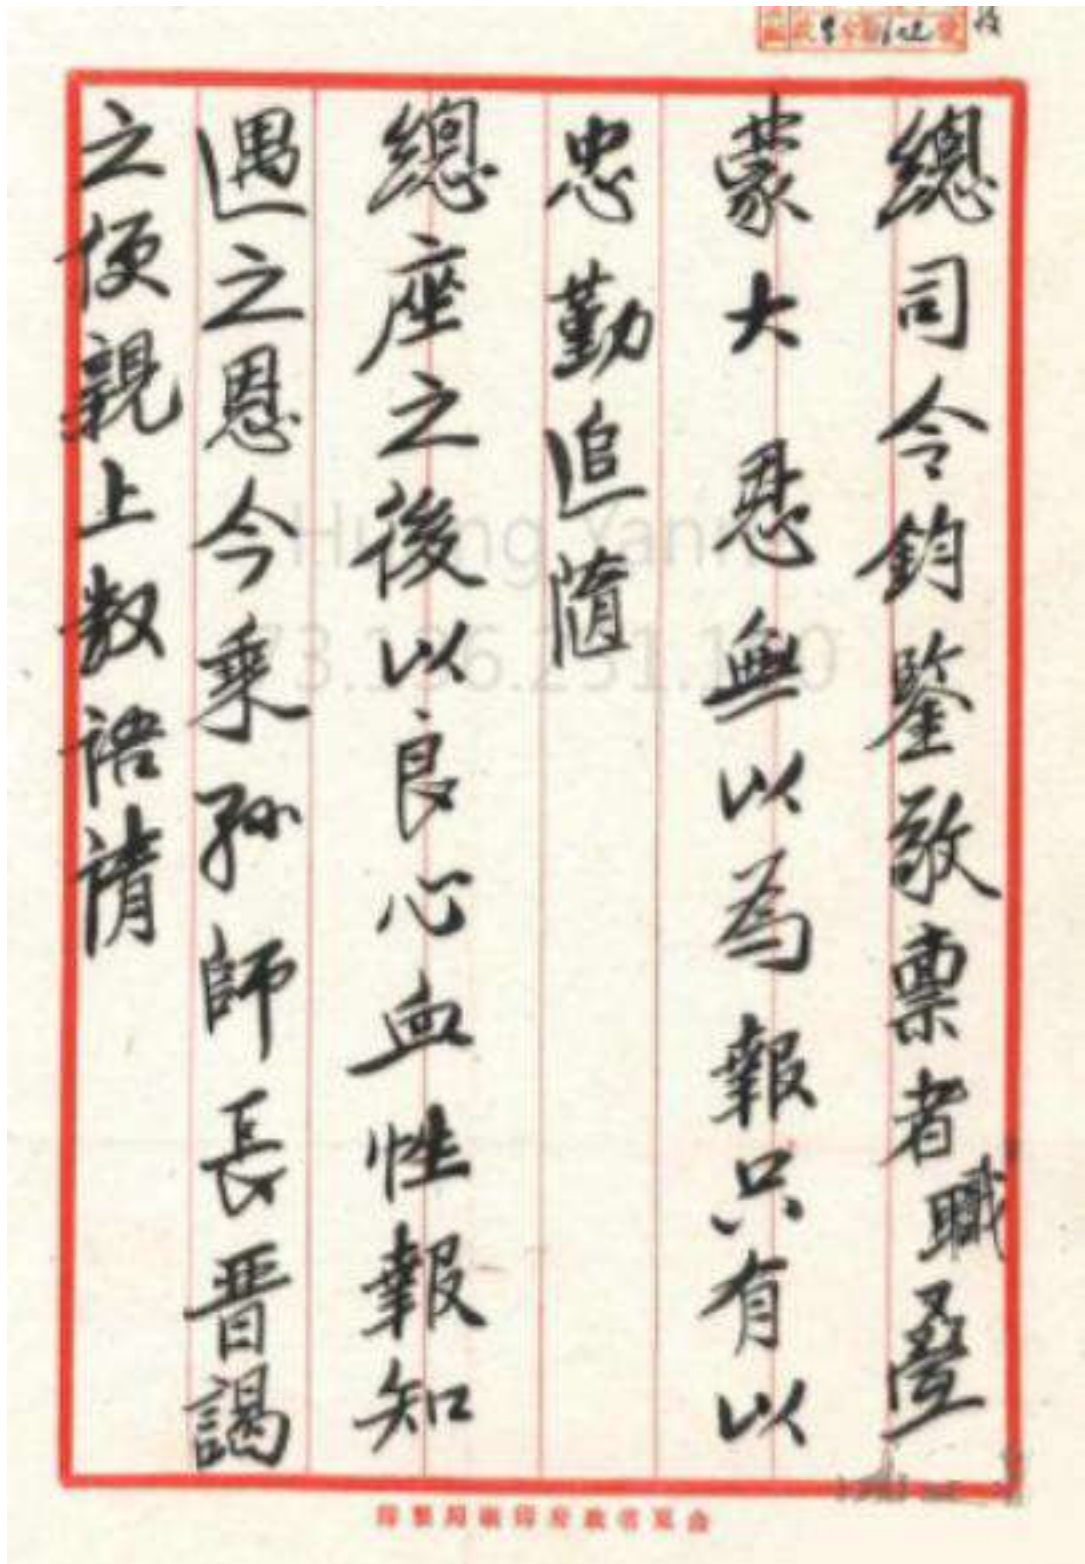 總司令鈞鑒敬稟者職疊
蒙大恩無以為報只有以
忠勤追隨
總座之後以良心血性報知
遇之恩今乘孫師長晋謁
之便親上数語請